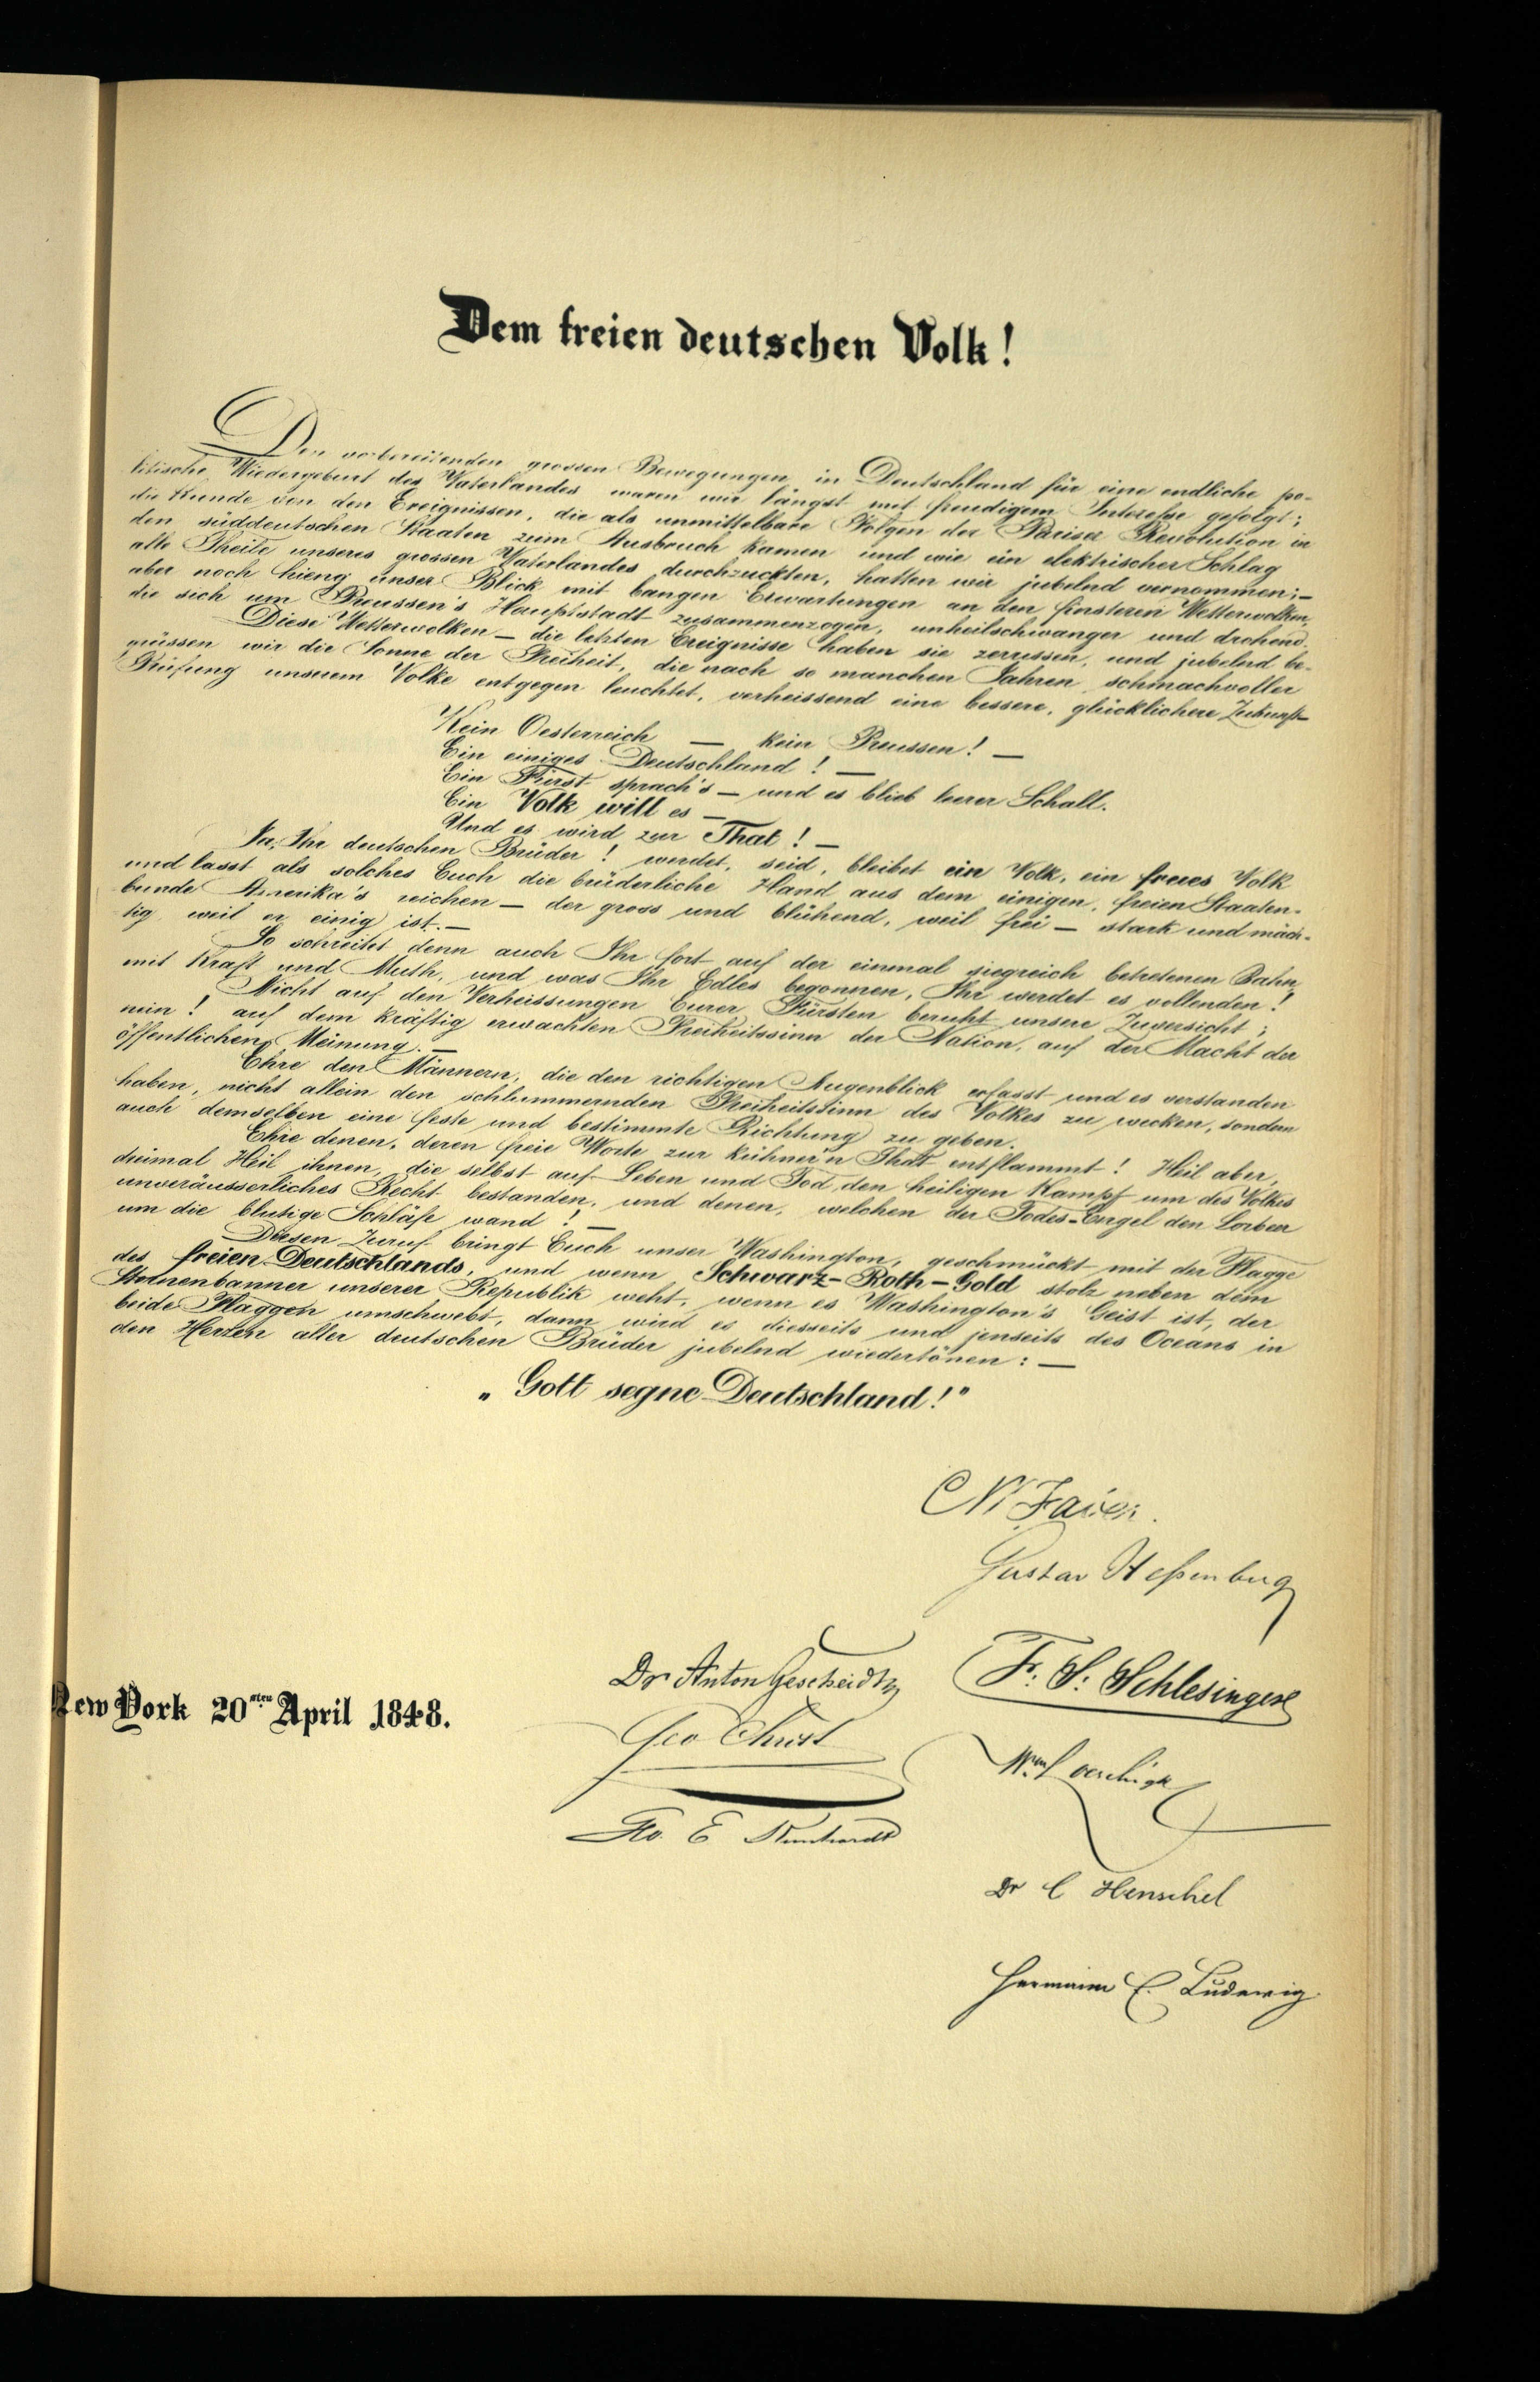 Dem freien deutschen Volk!
Den vorbereitenden grossen Bewegungen in Deutschland für eine endliche po-
litische Wiedergeburt des Vaterlandes waren wir längst mit freudigem Interesse gefolgt;
die Kunde von den Ereignissen, die als unmittelbare Folgen der Pariser Revolution in
den süddeutschen Staaten zum Ausbruch kamen und wie ein elektrischer Schlag
alle Theile unseres grossen Vaterlandes durchzuckten, hatten wir jubelnd vernommen; –
aber noch hieng unser Blick mit bangen Erwartungen an den finsteren Wetterwolken,
die sich um Preussen's Hauptstadt zusammenzogen, unheilschwanger und drohend.
Diese Wetterwolken – die letzten Ereignisse haben sie zerrissen, und jubelnd be-
grüssen wir die Sonne der Freiheit, die nach so manchen Jahren schmachvoller
Prüfung unserem Volke entgegen leuchtet, verheissend eine bessere, glücklichere Zukunft –
Kein Oesterreich – kein Preussen! –
Ein einiges Deutschland! –
Ein Fürst sprach's – und es blieb leerer Schall.
Ein Volk will es –
Und es wird zur That! –
Ja, Ihr deutschen Brüder! werdet, seid, bleibet ein Volk, ein freies Volk
und lasst als solches Euch die brüderliche Hand aus dem einigen, freien Staaten-
bunde Amerika's reichen – der gross und blühend, weil frei – stark und mäch-
tig, weil er einig ist. –
So schreitet denn auch Ihr fort auf der einmal siegreich betretenen Bahn,
mit Kraft und Muth, und was Ihr Edles begonnen, Ihr werdet es vollenden!
Nicht auf den Verheissungen Eurer Fürsten beruht unsere Zuversicht;
nein! auf dem kräftig erwachten Freiheitssinn der Nation, auf der Macht der
öffentlichen Meinung. –
Ehre den Männern, die den richtigen Augenblick erfasst und es verstanden
haben, nicht allein den schlummernden Freiheitssinn des Volkes zu wecken, sondern
auch demselben eine feste und bestimmte Richtung zu geben.
Ehre denen, deren freie Worte zur kühner'n That entflammt! Heil aber,
dreimal Heil ihnen, die selbst auf Leben und Tod, den heiligen Kampf um des Volkes
unveräusserliches Recht bestanden, und denen, welchen der Todes-Engel den Lorbeer
um die blutige Schläfe wand! –
Diesen Zuruf bringt Euch unser Washington, geschmückt mit der Flagge
des freien Deutschlands, und wenn Schwarz-Roth-Gold stolz neben dem
Sternenbanner unserer Republik weht, wenn es Washington's Geist ist, der
beide Flaggen umschwebt, dann wird es diesseits und jenseits des Oceans in
den Herzen aller deutschen Brüder jubelnd wiedertönen: –
„Gott segne Deutschland!"
Gustav Heßenberg
Dr Anton Gescheidt
F. S. Schlesinger
New York 20sten April 1848.
Geo Christ
Dr C Henschel
Hermann E. Ludewig.